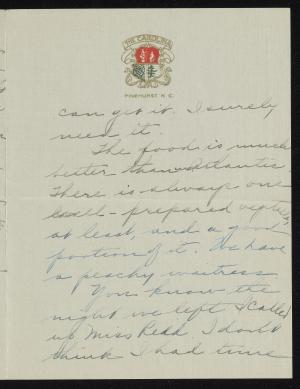 THE CAROLINA
PINEHURST N. C.
can get it. I surely
need it.
The food is much
better than Atlantic.
There is always one
well-prepared vegtible,
at least, and a good
portion of it. We have
a peachy waitress.
You know the
night we left I called
up Miss Redd. I don't
think I had time